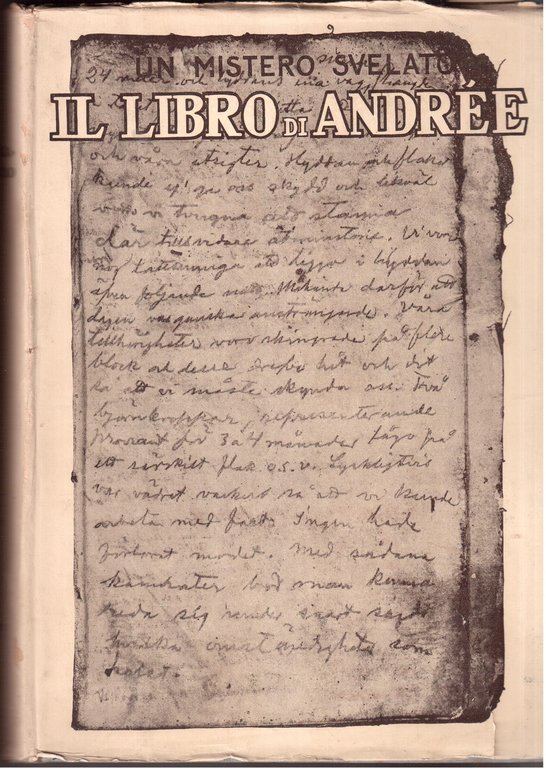 UN MISTERO SVELATO
IL LIBRO DI ANDRÉE
och våra utsigter. Hyddan och flaket
kunde ej ge oss skydd och likväl
voro vi tvungna att stanna
där tillsvidare åtminstone. Vi voro
nog lättsinniga att ligga i hyddan
äfven följande natt. Måhända därför att
dagen var ganska ansträngande. Våra
tillhörigheter voro skingrade på flere
block och dessa drefvo hit och dit
så att vi måste skynda oss. Två
björnkroppar, representerande
proviant för 3 à 4 månader lågo på
ett särskildt flak o.s.v. Lyckligtvis
var vädret vackert så att vi kunde
arbeta med fart. Ingen hade
förlorat modet. Med sådana
kamrater bör man kunna
reda sig under snart sagdt
hvilka omständigheter som
helst.